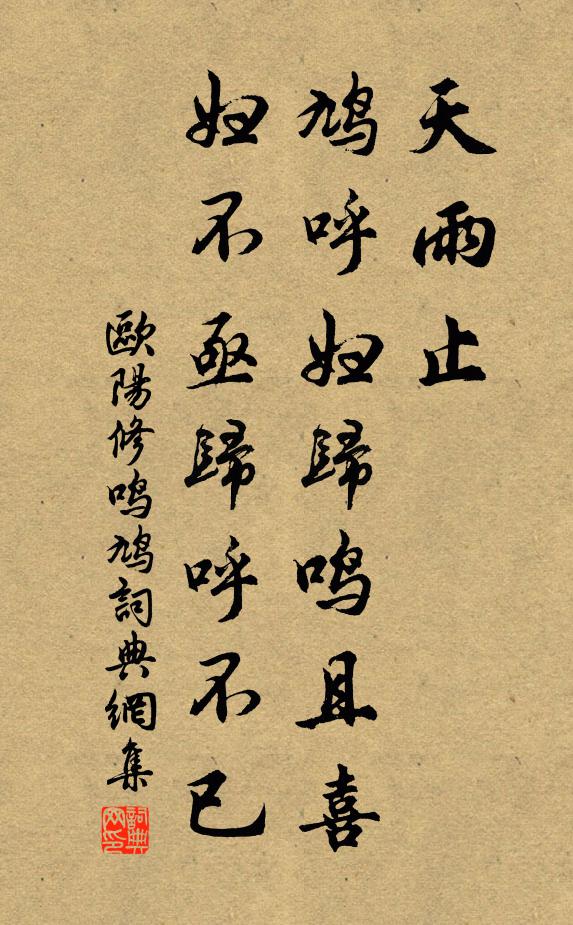 天雨止
鳩呼婦歸鳴且喜
婦不亟歸呼不已
歐陽修鳴鳩詞典網集
詞典网印